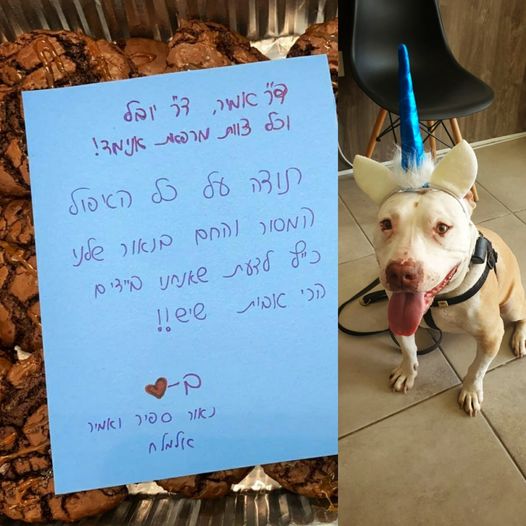 ד"ר אמיר, ד"ר יובל
וכל צוות מרפאת אנימד!
תודה על כל הטיפול
המסור והחם בנאור שלנו
כייף לדעת שאנחנו בידיים
הכי טובות שיש!!
ב-❤
נאור ספיר ואמיר
אלמלח